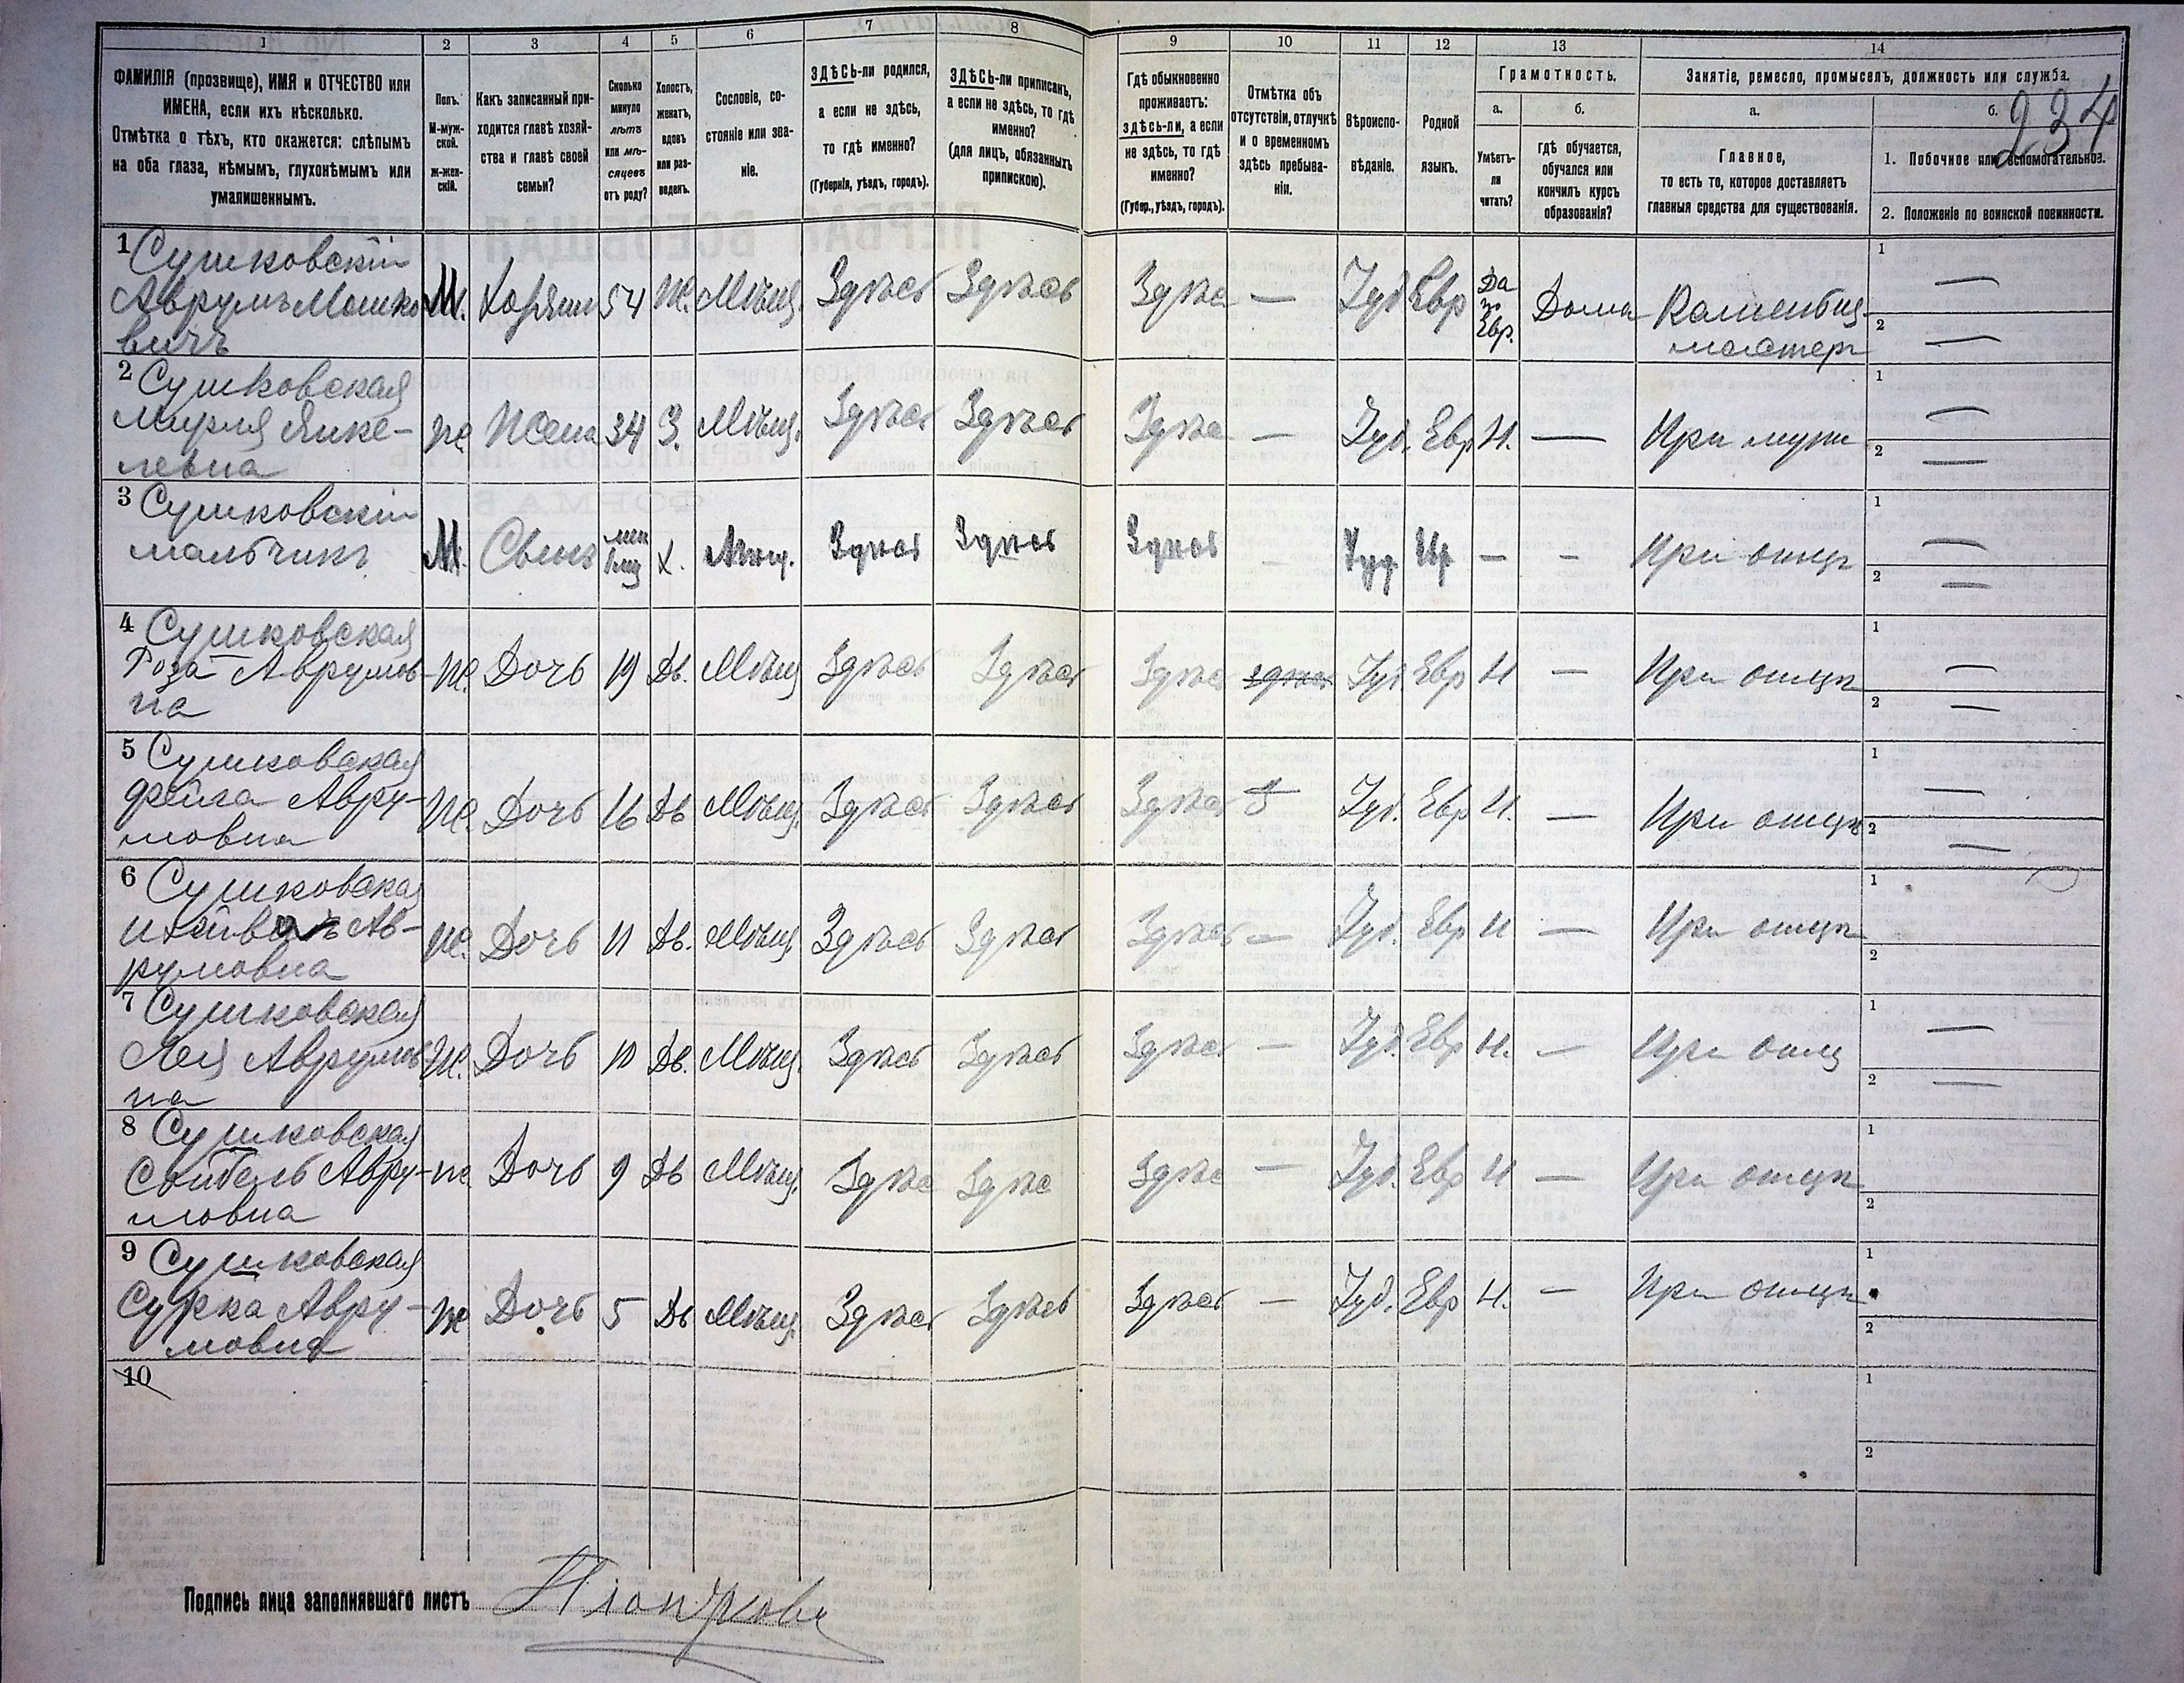 234
1 2 3 4 5 6 7 8 9 10 11 12 13 14
ФАМИЛІЯ (прозвище), ИМЯ и ОТЧЕСТВО или
ИМЕНА, если ихъ нѣсколько.
Отмѣтка о тѣхъ, кто окажется: слѣпымъ
на оба глаза, нѣмымъ, глухонѣмымъ или
умалишеннымъ.
Полъ.
М-муж-
ской.
Ж-жен-
скій.
Какъ записанный при-
ходится главѣ хозяй-
ства и главѣ своей
семьи?
Сколько
минуло
лѣтъ
или мѣ-
сяцевъ
отъ роду?
Холостъ,
женатъ,
вдовъ
или раз-
веденъ.
Сословіе, со-
стояніе или зва-
ніе.
ЗДѢСЬ-ли родился,
а если не здѣсь,
то гдѣ именно?
(Губернія, уѣздъ, городъ).
ЗДѢСЬ-ли приписанъ,
а если не здѣсь, то гдѣ
именно?
(для лицъ, обязанныхъ
припискою).
Гдѣ обыкновенно
проживаетъ:
здѣсь-ли, а если
не здѣсь, то гдѣ
именно?
(Губер., уѣздъ, городъ).
Отмѣтка объ
отсутствіи, отлучкѣ
и о временномъ
здѣсь пребыва-
ніи.
Вѣроиспо-
вѣданіе.
Родной
языкъ.
Грамотность.
а. б.
Умѣетъ-
ли
читать?
гдѣ обучается,
обучался или
кончилъ курсъ
образованія?
Занятіе, ремесло, промыселъ, должность или служба.
а. б.
Главное,
то есть то, которое доставляетъ
главныя средства для существованія.
1. Побочное или вспомогательное.
2. Положеніе по воинской повинности.
1 Сушковскій
Аврумъ Мошко
вичъ
М. Хозяин 54 Ж. Мѣщ. Здѣсь Здѣсь Здѣс — Іуд Евр Да по Евр. Дома Каменотц
мастер
1 —
2 —
2 Сушковская
Мирля Янке-
левна
Ж Жена 34 З. Мѣщ. Здѣсь Здѣсь Здѣс — Іуд. Евр Н. — При муж
1 —
2 —
3 Сушковскій
мальчикъ
М. Сынъ Х. Мѣщ. Здѣсь Здѣсь Здѣсь Іуд. Евр — — При отцѣ
1 —
2 —
4 Сушковская
Роза Аврумов-
на
Ж. Дочь 19 Дв. Мѣщ Здѣсь Здѣсь Здѣс здѣсь Іуд Евр Н — При отцѣ
1 —
2 —
5 Сушковская
Фейга Авру-
мовна
Ж. Дочь 16 Дв Мѣщ. Здѣсь Здѣсь Здѣсь Іуд. Евр Н. — При отцѣ
1 —
2 —
6 Сушковская
Ав-
румовна
Ж. Дочь 11 Дв. Мѣщ. Здѣсь Здѣсь Здѣсь — Іуд. Евр Н — При отцѣ
1
2
7 Сушковская
Лея Аврумов
на
Ж. Дочь 10 Дв. Мѣщ. Здѣсь Здѣсь Здѣсь — Іуд. Евр Н. — При отц
1 —
2 —
8 Сушковская
Авру-
мовна
Ж. Дочь 9 Дв Мѣщ. Здѣс Здѣс Здѣс — Іуд. Евр Н — При отцѣ
1
2
9 Сушковская
Сурка Авру-
мовна
Ж Дочь 5 Дв Мѣщ. Здѣсь Здѣсь Здѣсь — Іуд. Евр Н. — При отцѣ
1
2
10
1
2
Подпись лица заполнявшаго листъ